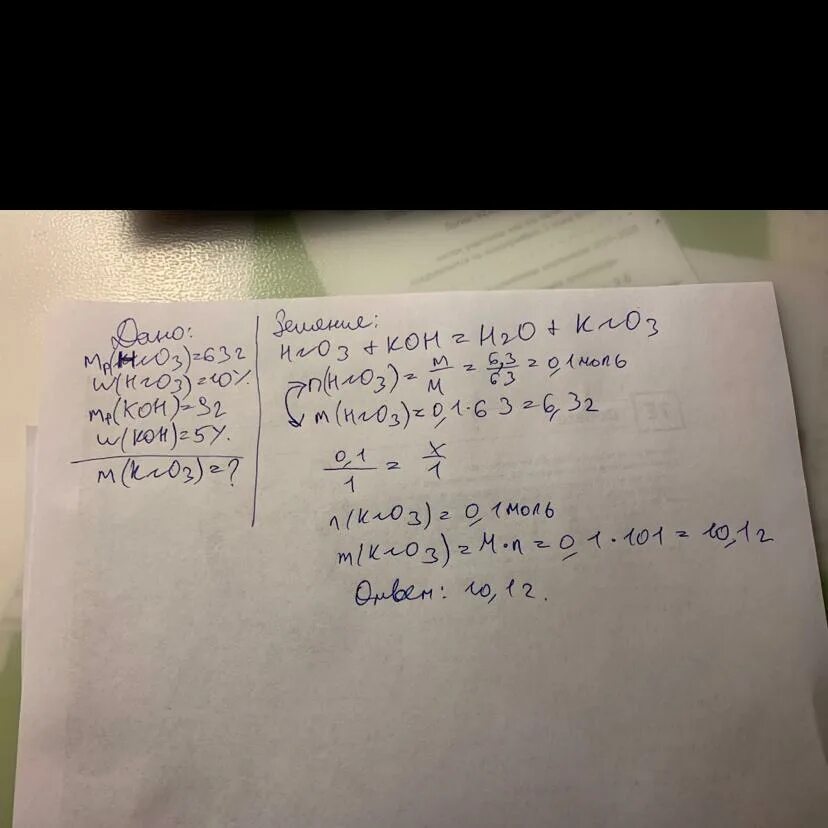 Дано:
mр(HNO3)=63г
w(HNO3)=10%.
mр(KOH)=9г
w(KOH)=5%.
m(KNO3)=?
Решение:
HNO3 + KOH = H2O + KNO3
n(HNO3) = m/M = 6,3/63 = 0,1 моль
m(HNO3)=0,1·63=6,3г
0,1/1 = x/1
n(KNO3)=0,1 моль
m(KNO3)=M·n=0,1·101=10,1г
Ответ: 10,1г.